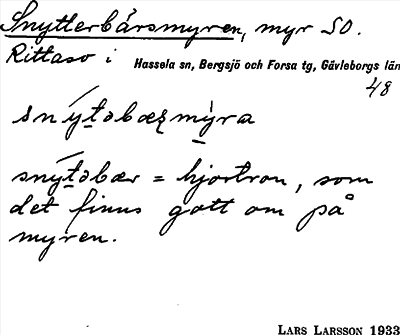 Snytterbärsmyren, myr SO.
Rittaso i Hassela sn, Bergsjö och Forsa tg, Gävleborgs län
48
snýtəbæʀmỳra
snýtəbær = hjortron, som
det finns gott om på
myren.
LARS LARSSON 1933